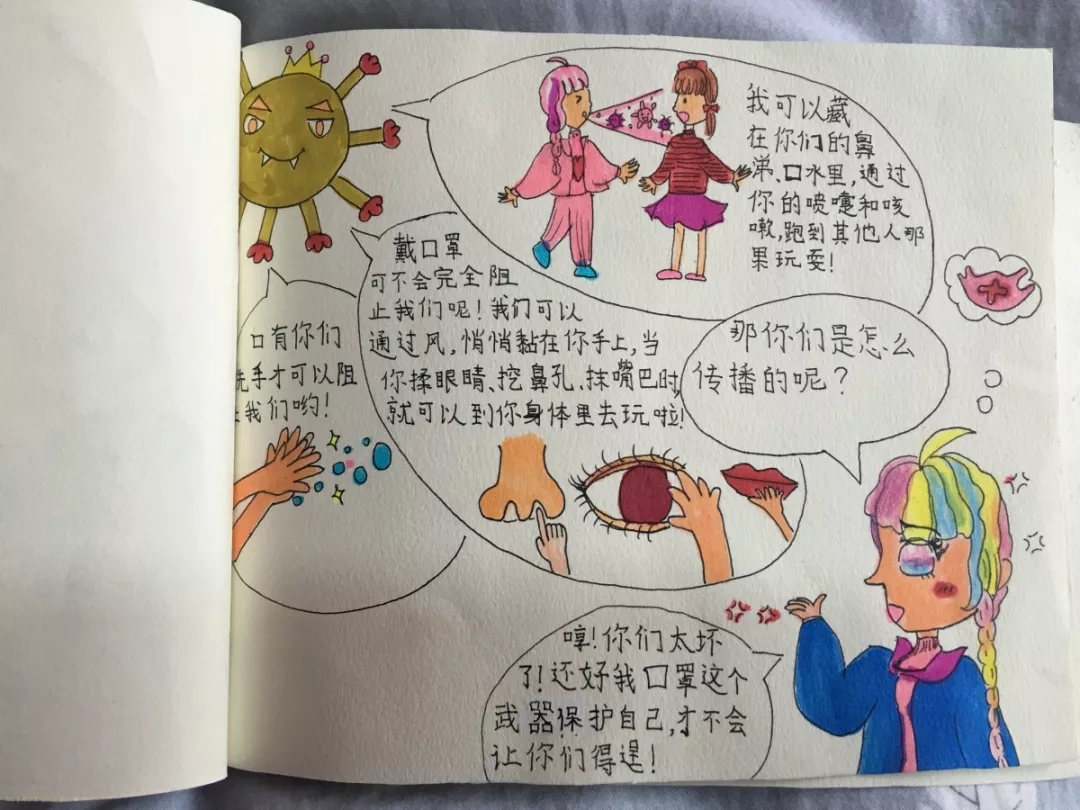 我可以藏
在你们的鼻
涕、口水里,通过
你的喷嚏和咳
嗽,跑到其他人那
果玩耍!
那你们是怎么
传播的呢?
戴口罩
可不会完全阻
止我们呢!我们可以
通过风,悄悄黏在你手上,当
你揉眼睛、挖鼻孔、抹嘴巴时,
就可以到你身体里去玩啦!
有你们
洗手才可以阻
止我们哟!
哼!你们太坏
了!还好我口罩这个
武器保护自己,才不会
让你们得逞!